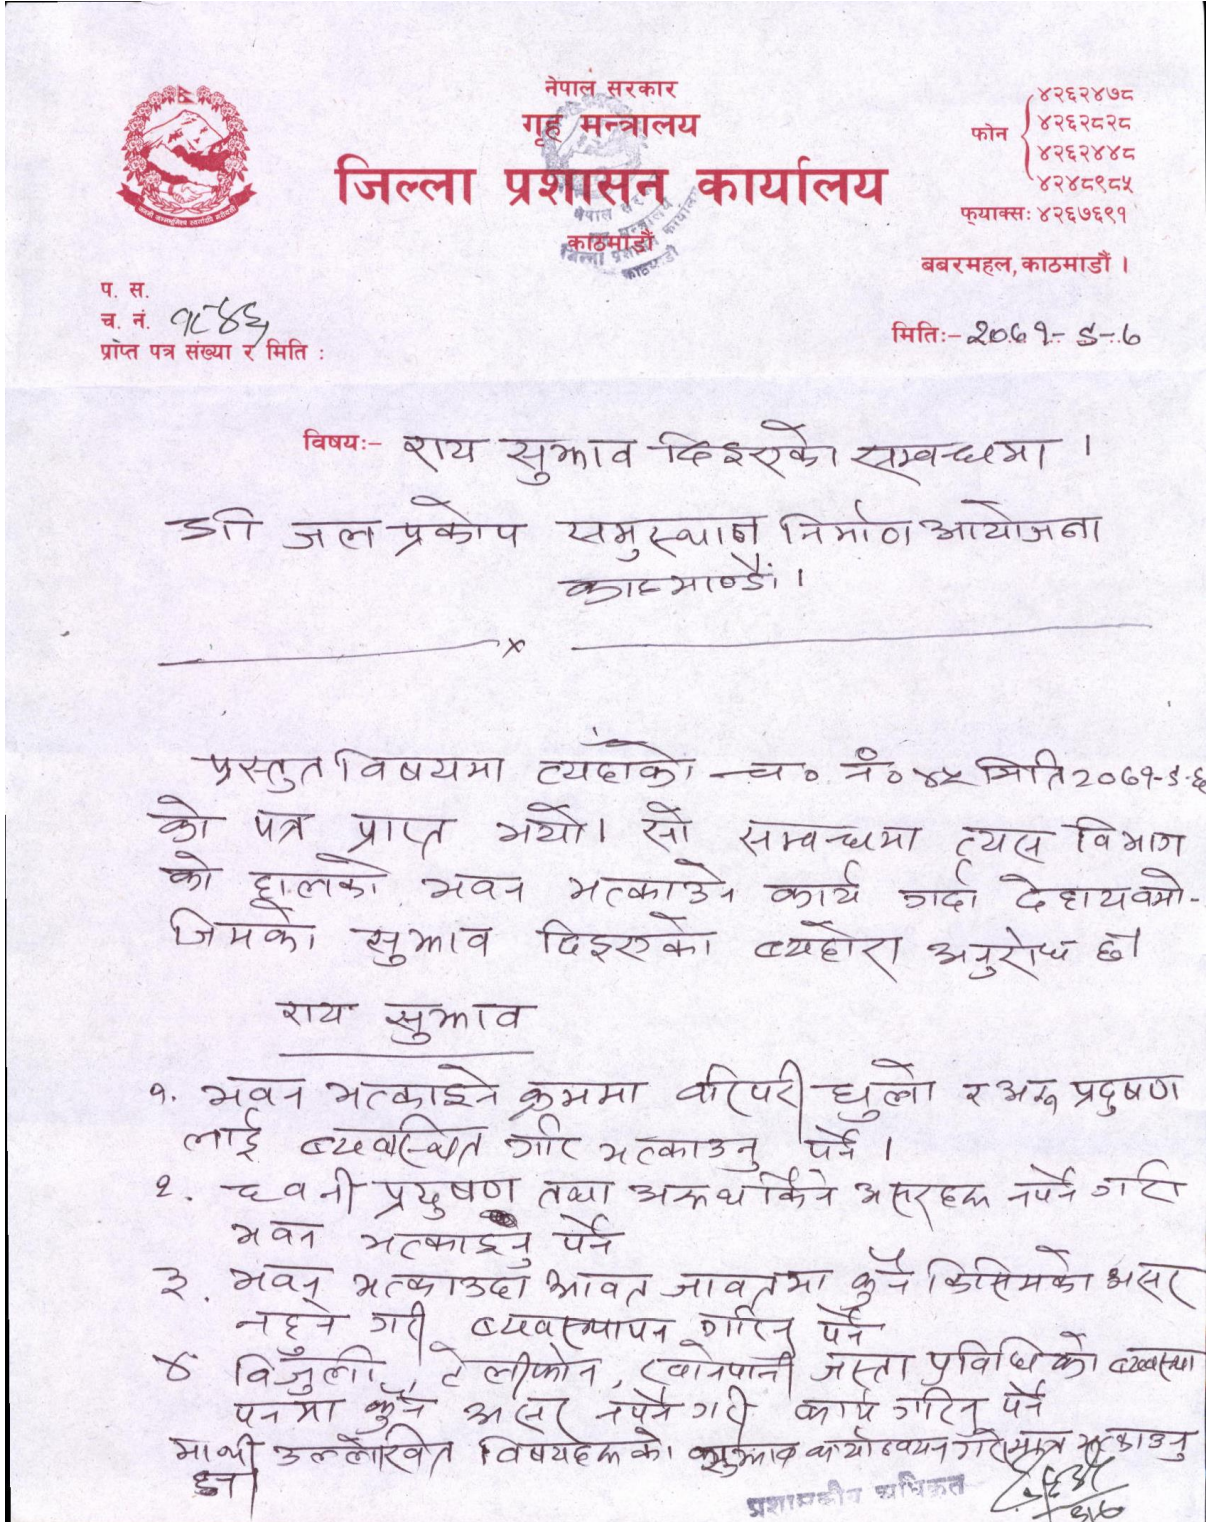 नेपाल सरकार
गृह मन्त्रालय
जिल्ला प्रशासन कार्यालय
काठमाडौं
फोन
४२६२४७८
४२६२८२८
४२६२४४८
४२४८९८५
फ्याक्सः ४२६७६९१
बबरमहल, काठमाडौं ।
प. स.
च. नं. १८४६
प्राप्त पत्र संख्या र मिति :
मितिः- २०७१-८-७
विषयः- राय सुझाव दिइएको सम्वन्धमा ।
श्री जल प्रकोप निर्माण आयोजना
काठमाण्डौं ।
प्रस्तुत विषयमा त्यहाँको च० नं० ४५ मिति २०७१-८-६
को पत्र प्राप्त भयो। सो सम्वन्धमा त्यस विभाग
को हालको भवन भत्काउने कार्य गर्दा देहायवमो-
जिमको सुझाव दिइएको व्यहोरा अनुरोध छ।
राय सुझाव
१. भवन भत्काइने क्रममा वरिपरी धुलो र अरू प्रदुषण
लाई व्यवस्थित गरि भत्काउनु पर्ने ।
२. ध्वनी प्रदुषण तथा असरहरू नपर्ने गरी
भवन भत्काइनु पर्ने
३. भवन भत्काउदा आवत जावतमा कुनै किसिमको असर
नहुने गरी व्यवस्थापन गरिनु पर्ने
४ विजुली, टेलीफोन, खानेपानी जस्ता प्रविधिको व्यवस्था
पनमा कुनै असर नपर्ने गरी कार्य गरिनु पर्ने
माथी उल्लेखित विषयहरूको सुझाव कार्यान्वयन गरी मात्र भत्काउनु
हुन।
प्रशासकीय अधिकृत